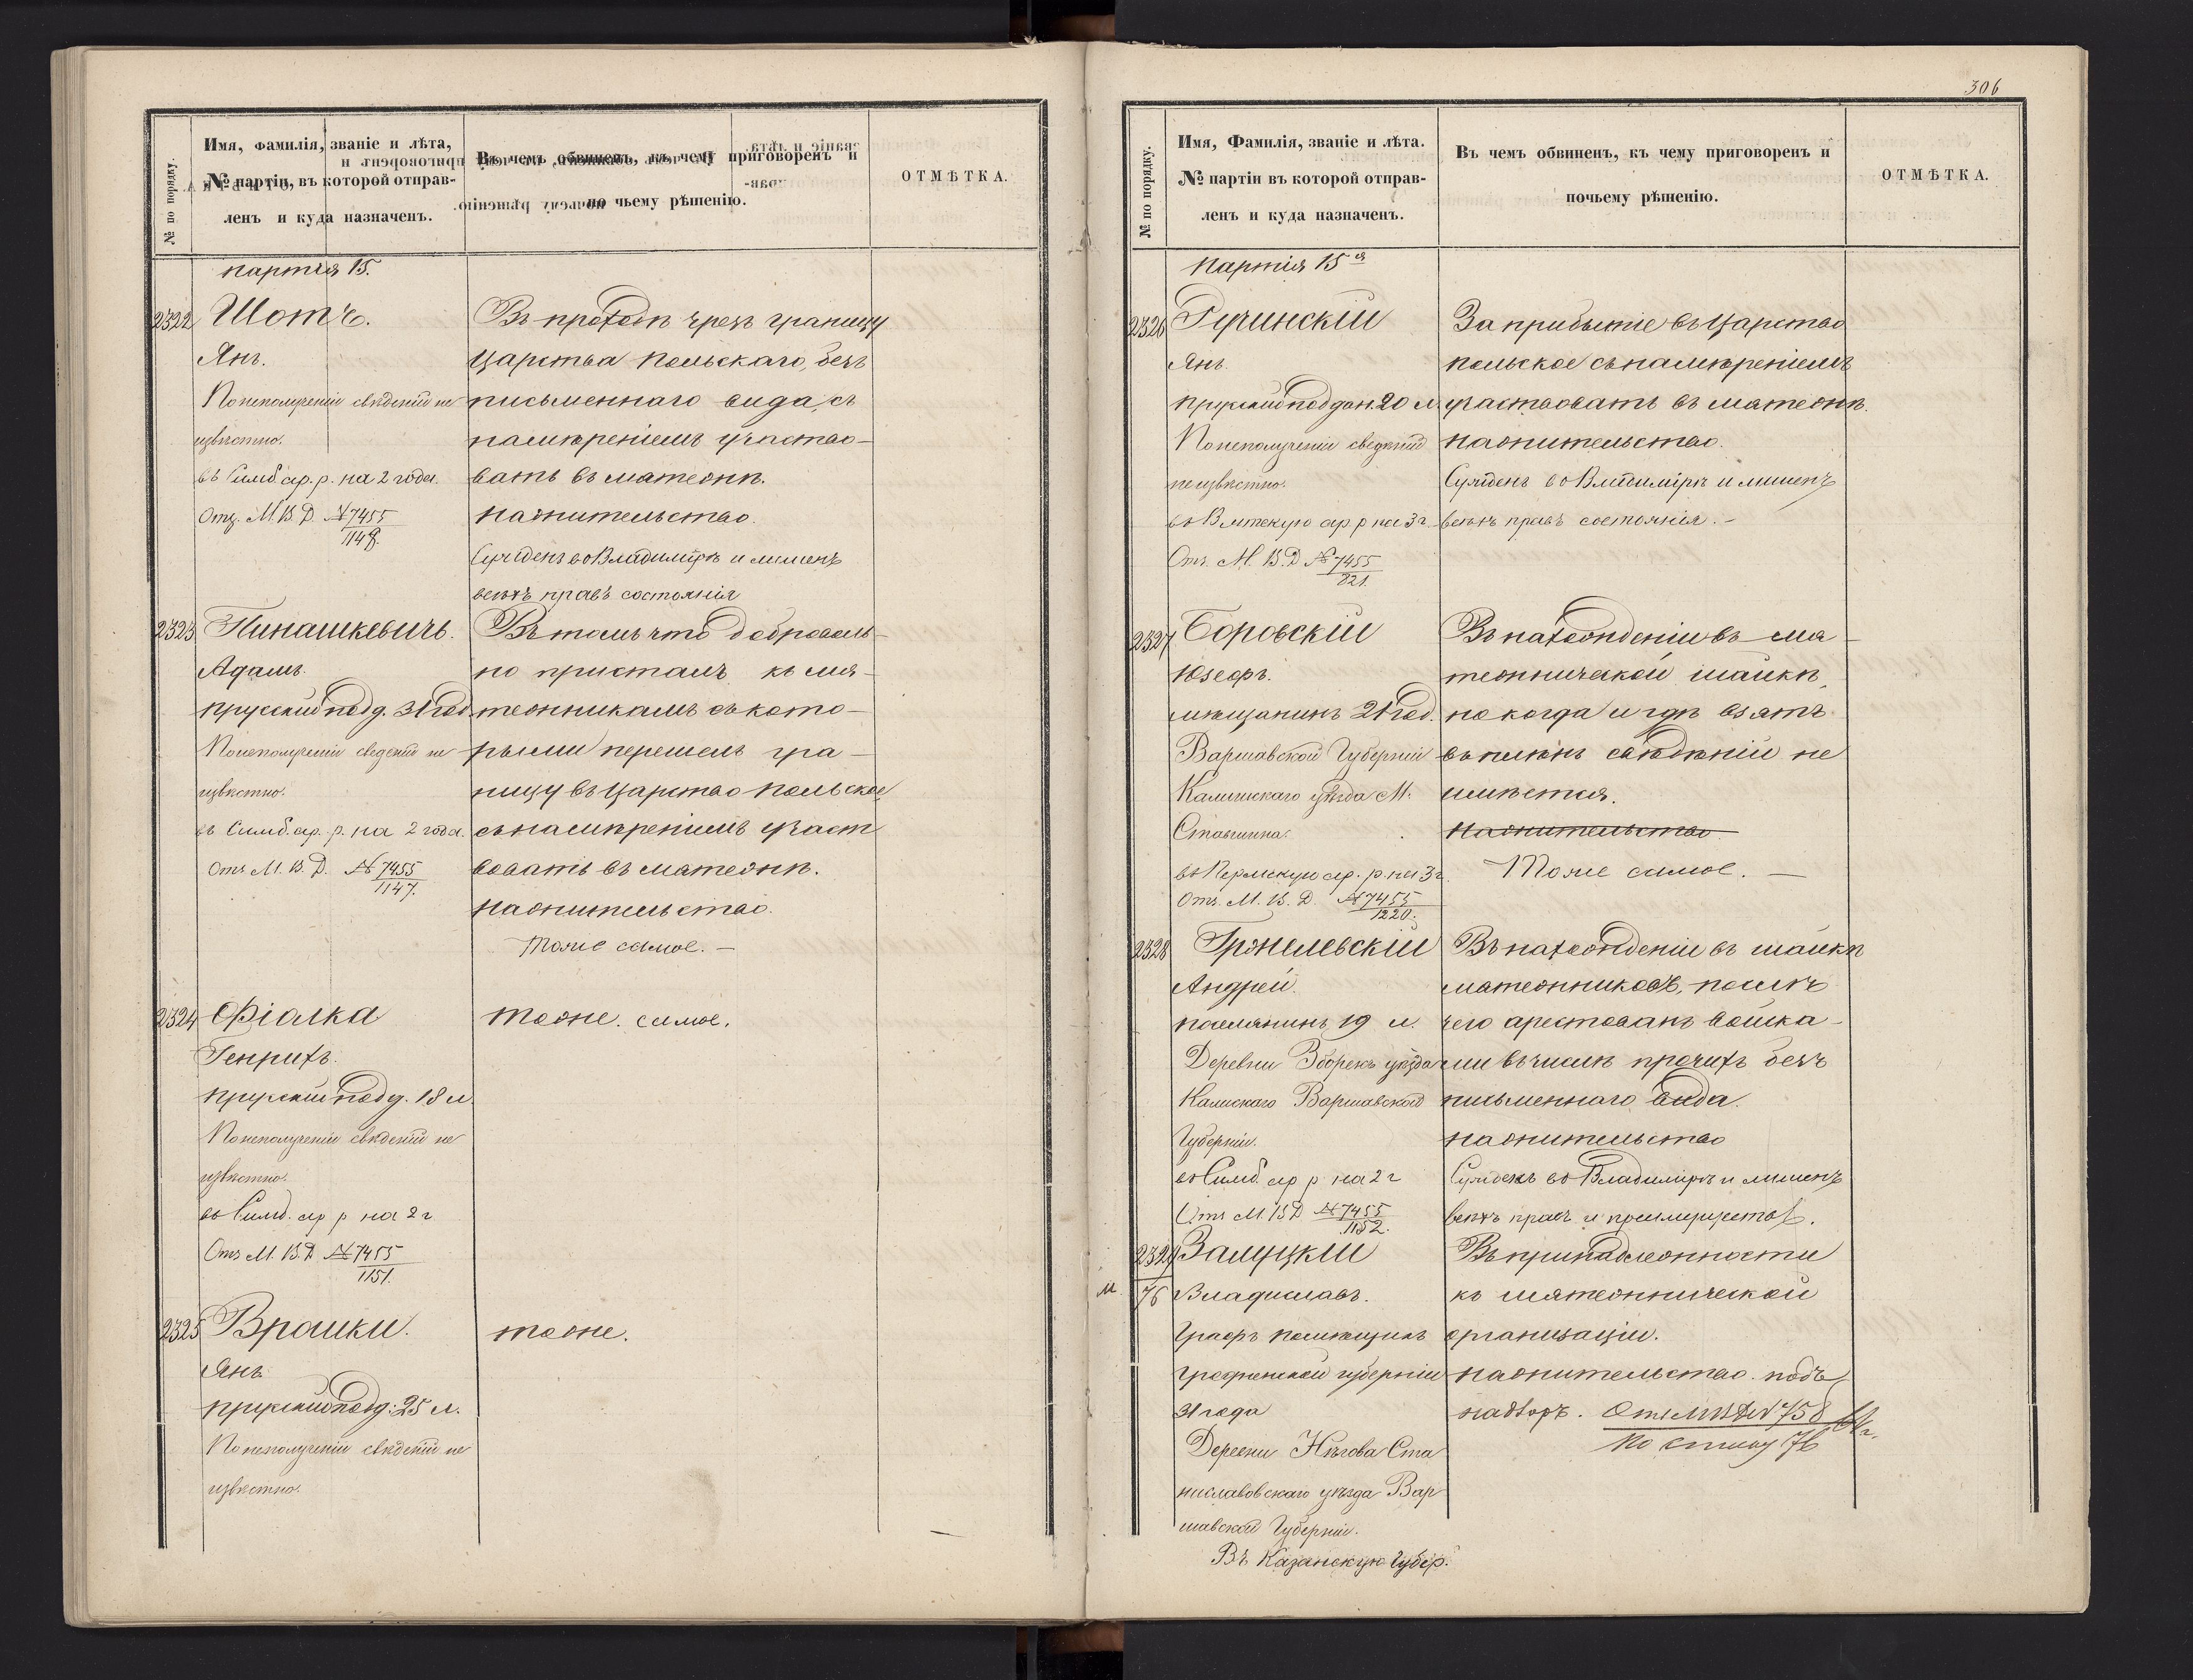 № по порядку.
Имя, фамилія, званіе и лѣта,
№ партіи, въ которой отправ-
ленъ и куда назначенъ.
Въ чемъ обвиненъ, къ чему приговоренъ и
по чьему рѣшенію.
ОТМѢТКА.
партія 15.
2322
Шотъ.
Янъ.
По неполученіи свѣденій не
извѣстно.
въ Симб. ар. р. на 2 года.
Отз. М. В. Д. № 7455
1148.
Въ проходѣ чрезъ границу
Царства Польскаго, безъ
письменнаго вида, съ
намѣреніемъ участво-
вать въ мятежѣ.
на жительство.
Сужденъ во Владимірѣ и лишенъ
всѣхъ правъ состоянія
2323
Пинашкевичъ.
Адамъ.
прусскій подд. 31 год.
По неполученіи сведеній не
извѣстно.
въ Симб. ар. р. на 2 года.
Отз М. В. Д. № 7455
1147.
Въ томъ что доброволь-
но присталъ къ мя-
тежникамъ съ кото-
рыми перешелъ гра-
ницу въ Царство Польское,
съ намѣреніемъ участ
вовать въ мятежѣ.
на жительство.
Тоже самое. —
2324
Фіалка
Генрихъ.
прусскій подд. 18 л.
По неполученіи свѣденій не
извѣстно.
въ Симб. ар р на 2 г
Отз М. В. Д № 7455
1151.
тоже. самое.
2325
Врошки.
Янъ
прусскій подд: 25 л.
По неполученіи свѣденій не
извѣстно.
тоже.
306
№ по порядку.
Имя, Фамилія, званіе и лѣта.
№ партіи въ которой отправ-
ленъ и куда назначенъ.
Въ чемъ обвиненъ, къ чему приговоренъ и
почьему рѣшенію.
ОТМѢТКА.
Партія 15я
2326
Янъ.
прусскій поддан. 20 л.
По неполученіи сведѣній
не извѣстно.
въ Вятскую ар р на 3 г.
Отз. М. В. Д № 7455
821.
За прибытіе въ Царство
польское съ намѣреніемъ
участвовать въ мятежѣ.
на жительство.
Сужденъ во Владимірѣ и лишенъ
всѣхъ правъ состоянія. —
2327
Боровскій
Юзефъ.
мѣщанинъ 21 год.
Варшавской Губерніи
Калишскаго уѣзда М.
Ставишна.
въ Пермскую ар. р. на 3 г.
Отз. М. В. Д. № 7455
1220.
Въ нахожденіи въ мя-
тежнической шайкѣ,
но когда и гдѣ взятъ
въ плѣнъ свѣдѣній не
имѣется.
на жительство
Тоже самое. —
2328
Гржелевскій
Андрей.
поселянинъ 19 л.
Деревни Зборекъ уѣзда
Калискаго Варшавской
Губерніи.
въ Симб. ар р на 2 г
Отз М. В Д № 7455
1152.
Въ нахожденіи въ шайкѣ
мятежниковъ, послѣ
чего арестованъ войска-
ми въ числѣ прочихъ безъ
письменнаго вида.
на жительство
Сужденъ во Владимірѣ и лишенъ
всѣхъ правъ и преимуществъ.
2329
М. 76
Залуцкій
Владиславъ.
Графъ помѣщикъ
Гродненской губерніи
31 года
Деревни Нѣгова Ста
ниславовскаго уѣзда Вар
шавской Губерніи.
Въ Казанскую Губер.
Въ принадлежности
къ мятежнической
организаціи.
на жительство. подъ
надзоръ. Отз МВД № 758
по списку 76